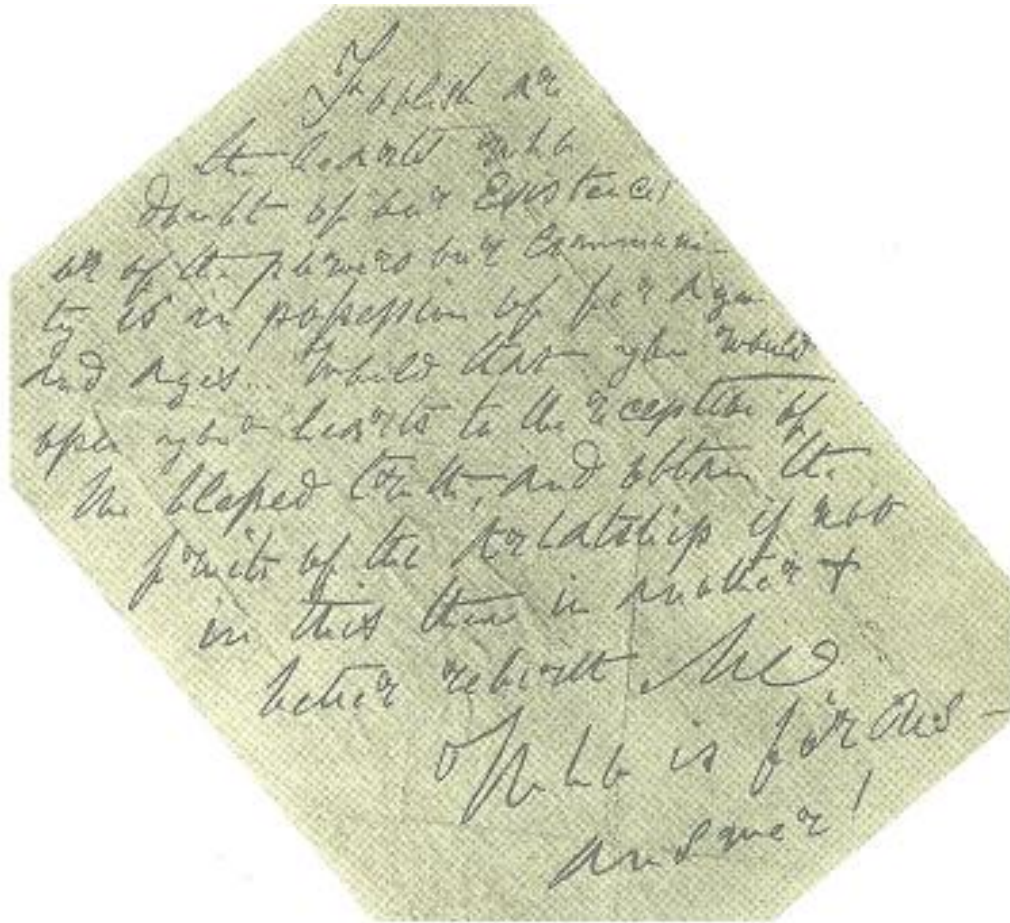 Foolish are
the hearts who
doubt of our Existence!
or of the powers our communi-
ty is in possession of for ages
and ages.. Would that you would
open your hearts to the reception of
the blessed truth, and obtain the
fruits of the Arhatship if not
in this then in another +
better rebirth
Who is for us -
answer!